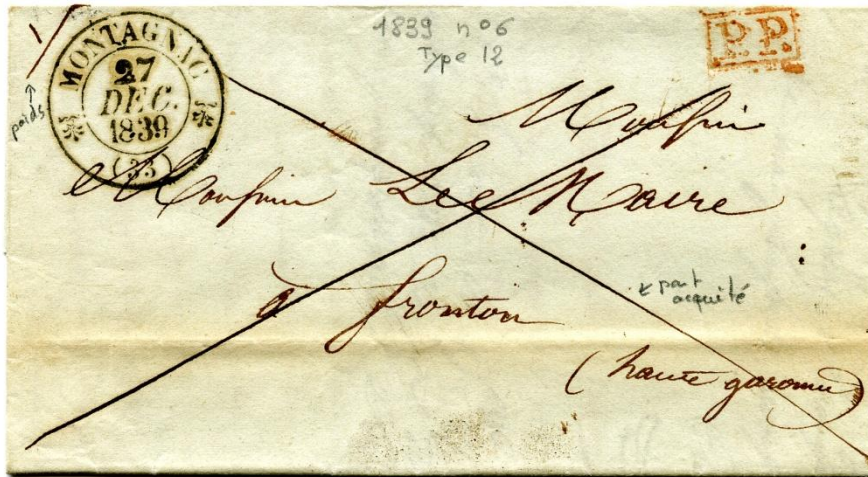 1839 nº 6
Type 12
P.P.
1
poids
MONTAGNAC
27
DEC.
1839
(33)
Monsieur
Monsieur Le Maire
à fronton
port
acquité
(haute garonne)